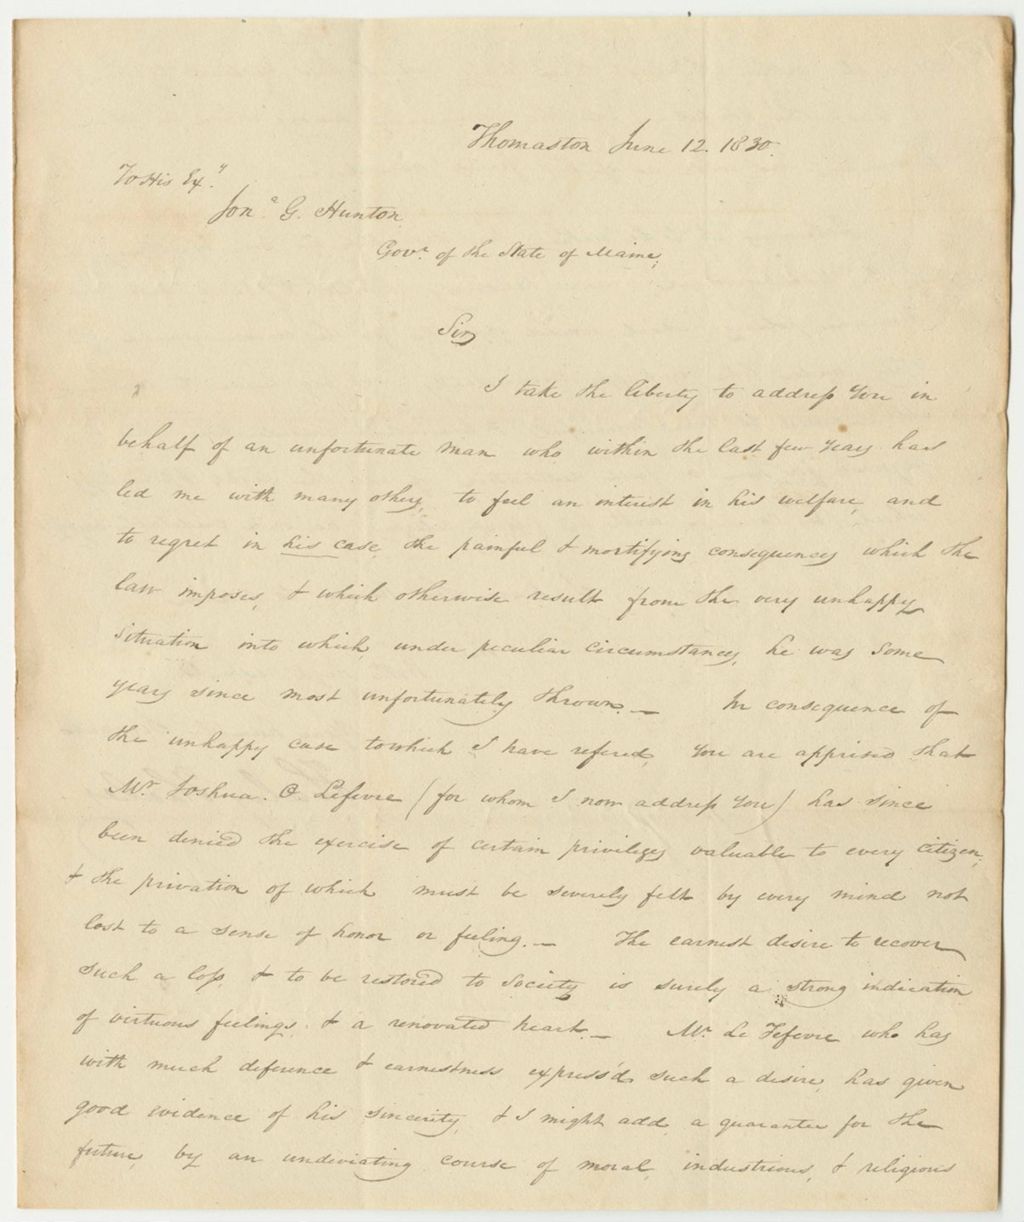 Thomaston June 12. 1830.
To His Exy.
Jona. G. Hunton
Govr. of the State of Maine;
Sir,
I take the liberty to address You in
behalf of an unfortunate man who within the last few years has
led me with many others, to feel an interest in his welfare, and
to regret in his case the painful & mortifying consequences which the
law imposes, & which otherwise result from the very unhappy
situation into which, under peculiar circumstances, he was some
years since most unfortunately thrown. — In consequence of
the unhappy case to which I have refered, You are apprised that
Mr. Joshua. C. Lefevre (for whom I now address You) has since
been denied the exercise of certain privileges valuable to every citizen,
& the privation of which must be severely felt by every mind not
lost to a sense of honor or feeling. — The earnest desire to recover
such a loss, & to be restored to Society is surely a strong indication
of virtuous feelings & a renovated heart. — Mr. Le Fefevre who has
with much deference & earnestness express'd such a desire, has given
good evidence of his sincerity, & I might add, a guarantee for the
future, by an undeviating course of moral, industrious, & religious